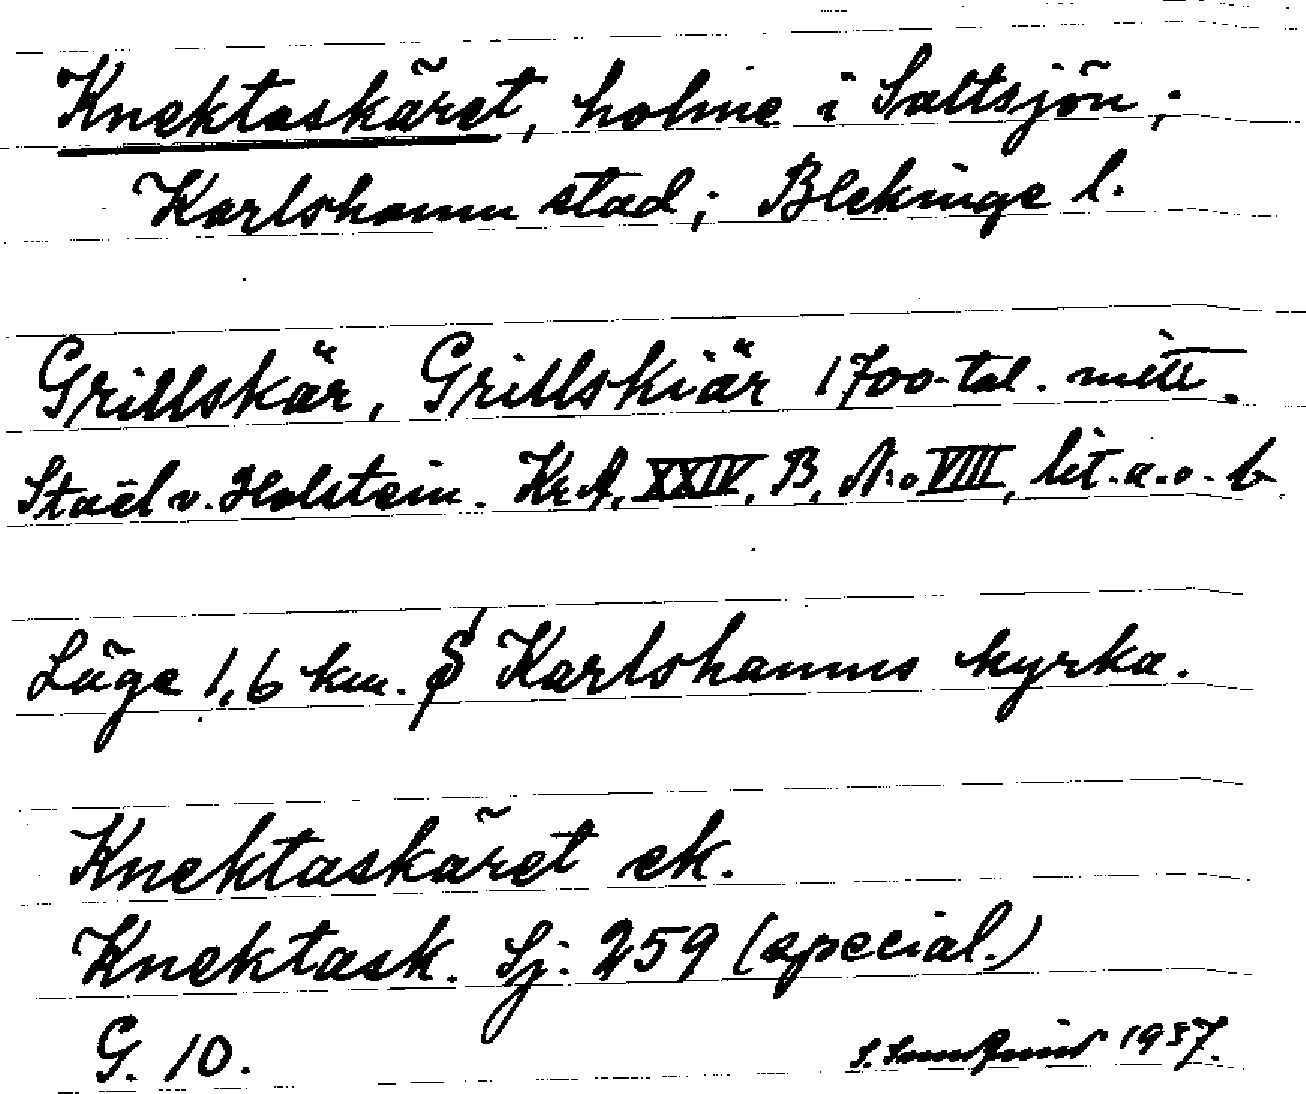 Knektaskäret, holme i Saltsjön;
Karlshamn stad; Blekinge l.
Grillskär, Grillskiär 1700-tal. mitt.
Staël v. Holstein. Kr.A. XXIV, B, N:o VIII, lit. a. o. b.
Läge 1,6 km. S Karlshamns kyrka.
Knektaskäret ek.
Knektask. Sj. 259 (special.)
G. 10.
S. 1937.